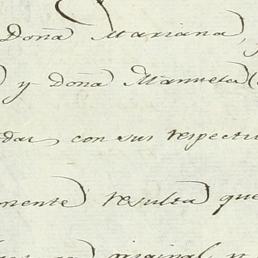 Doña Mariana, y
) y doña Manuela (
das con sus respecti
nente) resulta que
original y